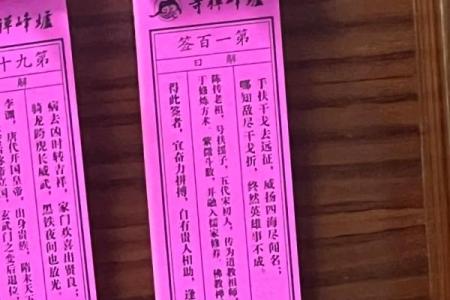 炉峰禅寺
第一百签
解曰
手扶干戈去远征，威扬四海尽闻名；
哪知敌尽干戈折，终然英雄事不成。
陈传老祖，号扶摇子，五代宋初人，传为道教祖师，
于修炼方术、紫微斗数，并融入儒家修养、佛教禅
得此签者，宜奋力拼搏，自有贵人相助，逢
禅峰炉
第九十
解
病去凶时转吉祥，家门欢喜出贤良；
骑龙跨虎长威武，黑铁夜间也放光。
李渊，唐代开国皇帝，出身贵族，隋末天五
立国，玄武门之变后退位